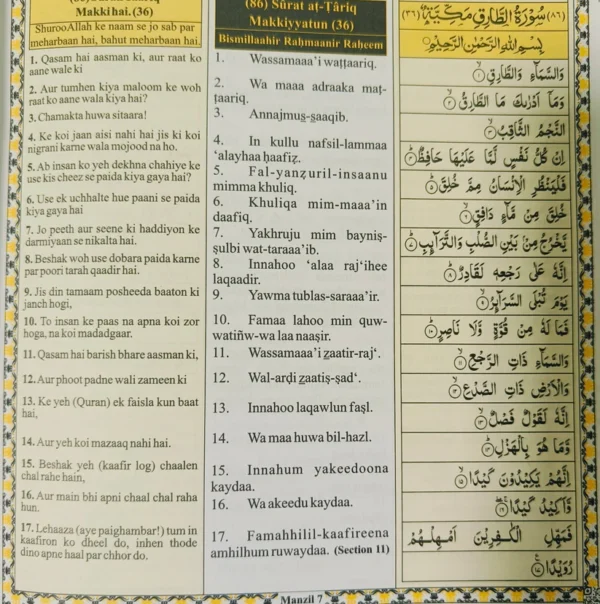 Makki hai. (36)
ShurooAllah ke naam se jo sab par
meharbaan hai, bahut meharbaan hai.
1. Qasam hai aasman ki, aur raat ko
aane wale ki
2. Aur tumhen kiya maloom ke woh
raat ko aane wala kiya hai?
3. Chamakta huwa sitaara!
4. Ke koi jaan aisi nahi hai jis ki koi
nigrani karne wala mojood na ho.
5. Ab insan ko yeh dekhna chahiye ke
use kis cheez se paida kiya gaya hai?
6. Use ek uchhalte hue paani se paida
kiya gaya hai
7. Jo peeth aur seene ki haddiyon ke
darmiyaan se nikalta hai.
8. Beshak woh use dobara paida karne
par poori tarah qaadir hai.
9. Jis din tamaam posheeda baaton ki
janch hogi,
10. To insan ke paas na apna koi zor
hoga, na koi madadgaar.
11. Qasam hai barish bhare aasman ki,
12. Aur phoot padne wali zameen ki
13. Ke yeh (Quran) ek faisla kun baat
hai,
14. Aur yeh koi mazaaq nahi hai.
15. Beshak yeh (kaafir log) chaalen
chal rahe hain,
16. Aur main bhi apni chaal chal raha
hun.
17. Lehaaza (aye paighambar!) tum in
kaafiron ko dheel do, inhen thode
dino apne haal par chhor do.
(86) Sūrat aṭ-Ṭāriq
Makkiyyatun (36)
Bismillaahir Raḥmaanir Raḥeem
1. Wassamaaa'i waṭṭaariq.
2. Wa maaa adraaka maṭ-
ṭaariq.
3. Annajmus̱-s̱aaqib.
4. In kullu nafsil-lammaa
'alayhaa ḥaafiẓ.
5. Fal-yanẓuril-insaanu
mimma khuliq.
6. Khuliqa mim-maaa'in
daafiq.
7. Yakhruju mim bayniṣ-
ṣulbi wat-taraaa'ib.
8. Innahoo 'alaa raj'ihee
laqaadir.
9. Yawma tublas-saraaa'ir.
10. Famaa lahoo min quw-
watiñw-wa laa naaṣir.
11. Wassamaaa'i ẕaatir-raj'.
12. Wal-arḍi ẕaatiṣ-ṣad'.
13. Innahoo laqawlun faṣl.
14. Wa maa huwa bil-hazl.
15. Innahum yakeedoona
kaydaa.
16. Wa akeedu kaydaa.
17. Famahhilil-kaafireena
amhilhum ruwaydaa. (Section 11)
(٨٦) سُوْرَةُ الطَّارِقِ مَكِّيَّةٌ (٣٦)
بِسْمِ اللهِ الرَّحْمٰنِ الرَّحِيْمِ
وَالسَّمَآءِ وَالطَّارِقِ ۙ﴿١﴾
وَمَآ اَدْرٰىكَ مَا الطَّارِقُ ۙ﴿٢﴾
النَّجْمُ الثَّاقِبُ ۙ﴿٣﴾
اِنْ كُلُّ نَفْسٍ لَّمَّا عَلَيْهَا حَافِظٌ ؕ﴿٤﴾
فَلْيَنْظُرِ الْاِنْسَانُ مِمَّ خُلِقَ ؕ﴿٥﴾
خُلِقَ مِنْ مَّآءٍ دَافِقٍ ۙ﴿٦﴾
يَّخْرُجُ مِنْۢ بَيْنِ الصُّلْبِ وَالتَّرَآئِبِ ؕ﴿٧﴾
اِنَّهٗ عَلٰى رَجْعِهٖ لَقَادِرٌ ؕ﴿٨﴾
يَوْمَ تُبْلَى السَّرَآئِرُ ۙ﴿٩﴾
فَمَا لَهٗ مِنْ قُوَّةٍ وَّلَا نَاصِرٍ ؕ﴿١٠﴾
وَالسَّمَآءِ ذَاتِ الرَّجْعِ ۙ﴿١١﴾
وَالْاَرْضِ ذَاتِ الصَّدْعِ ۙ﴿١٢﴾
اِنَّهٗ لَقَوْلٌ فَصْلٌ ۙ﴿١٣﴾
وَّمَا هُوَ بِالْهَزْلِ ؕ﴿١٤﴾
اِنَّهُمْ يَكِيْدُوْنَ كَيْدًا ۙ﴿١٥﴾
وَّاَكِيْدُ كَيْدًا ۚ﴿١٦﴾
فَمَهِّلِ الْكٰفِرِيْنَ اَمْهِلْهُمْ
رُوَيْدًا ﴿١٧﴾
Manzil 7